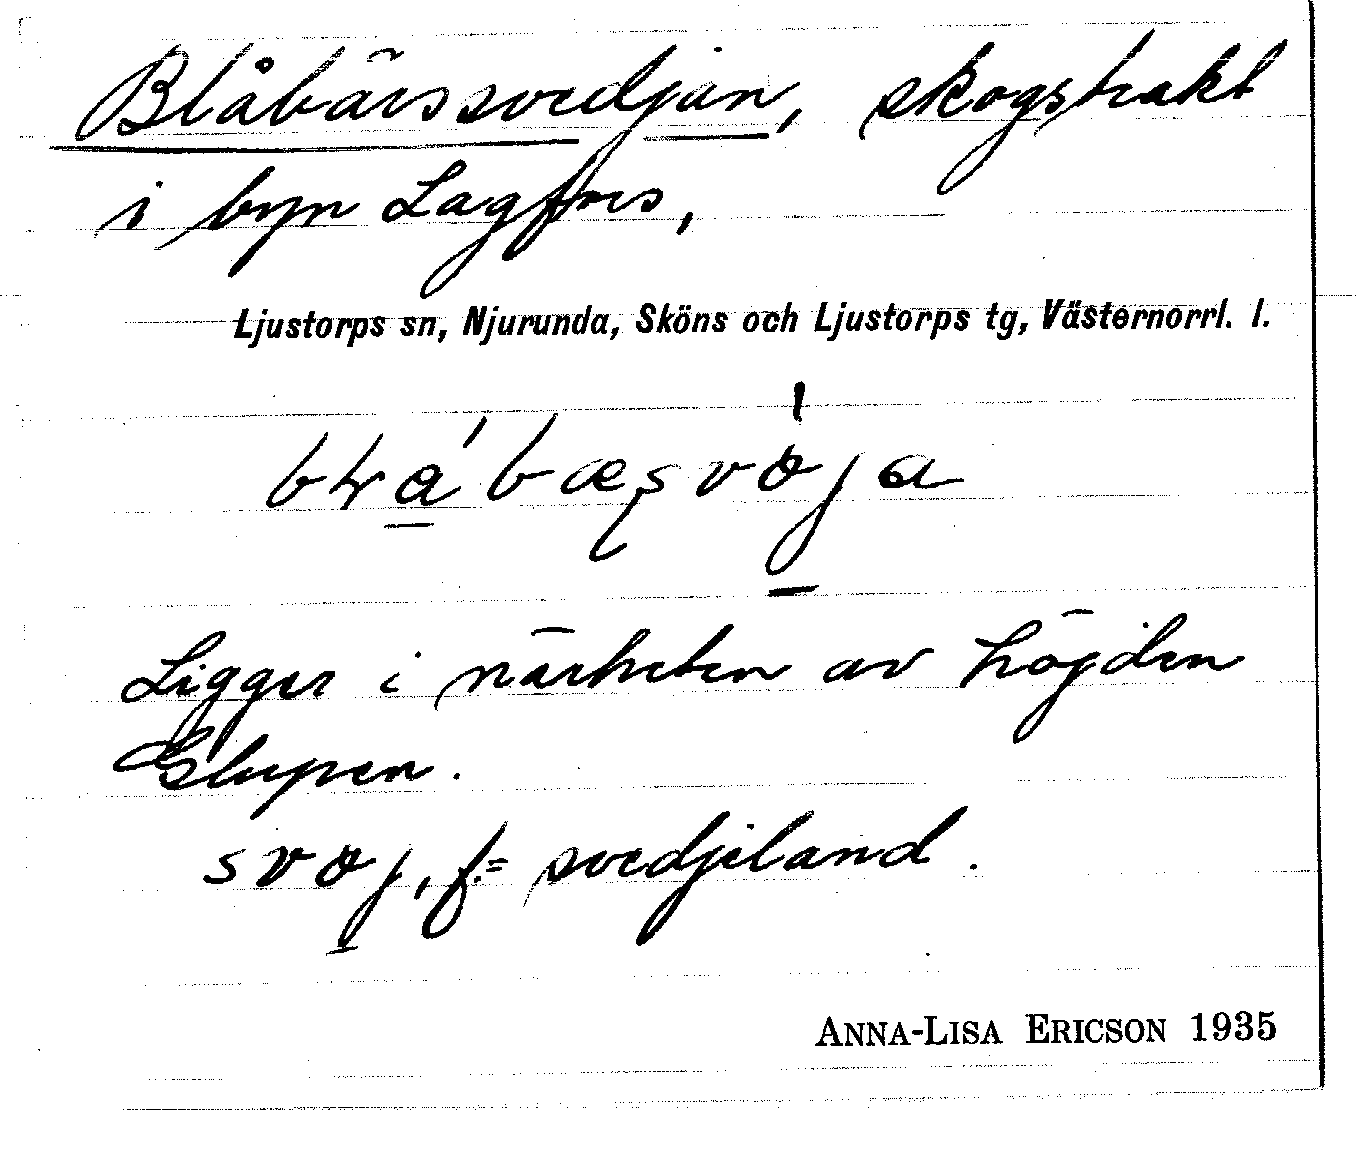 Blåbärssvedjan, skogstrakt
i byn Lagfors,
Ljustorps sn, Njurunda, Sköns och Ljustorps tg, Västernorrl. l.
Ligger i närheten av höjden
Slupen.
svøj, f.= svedjeland.
ANNA-LISA ERICSON 1935